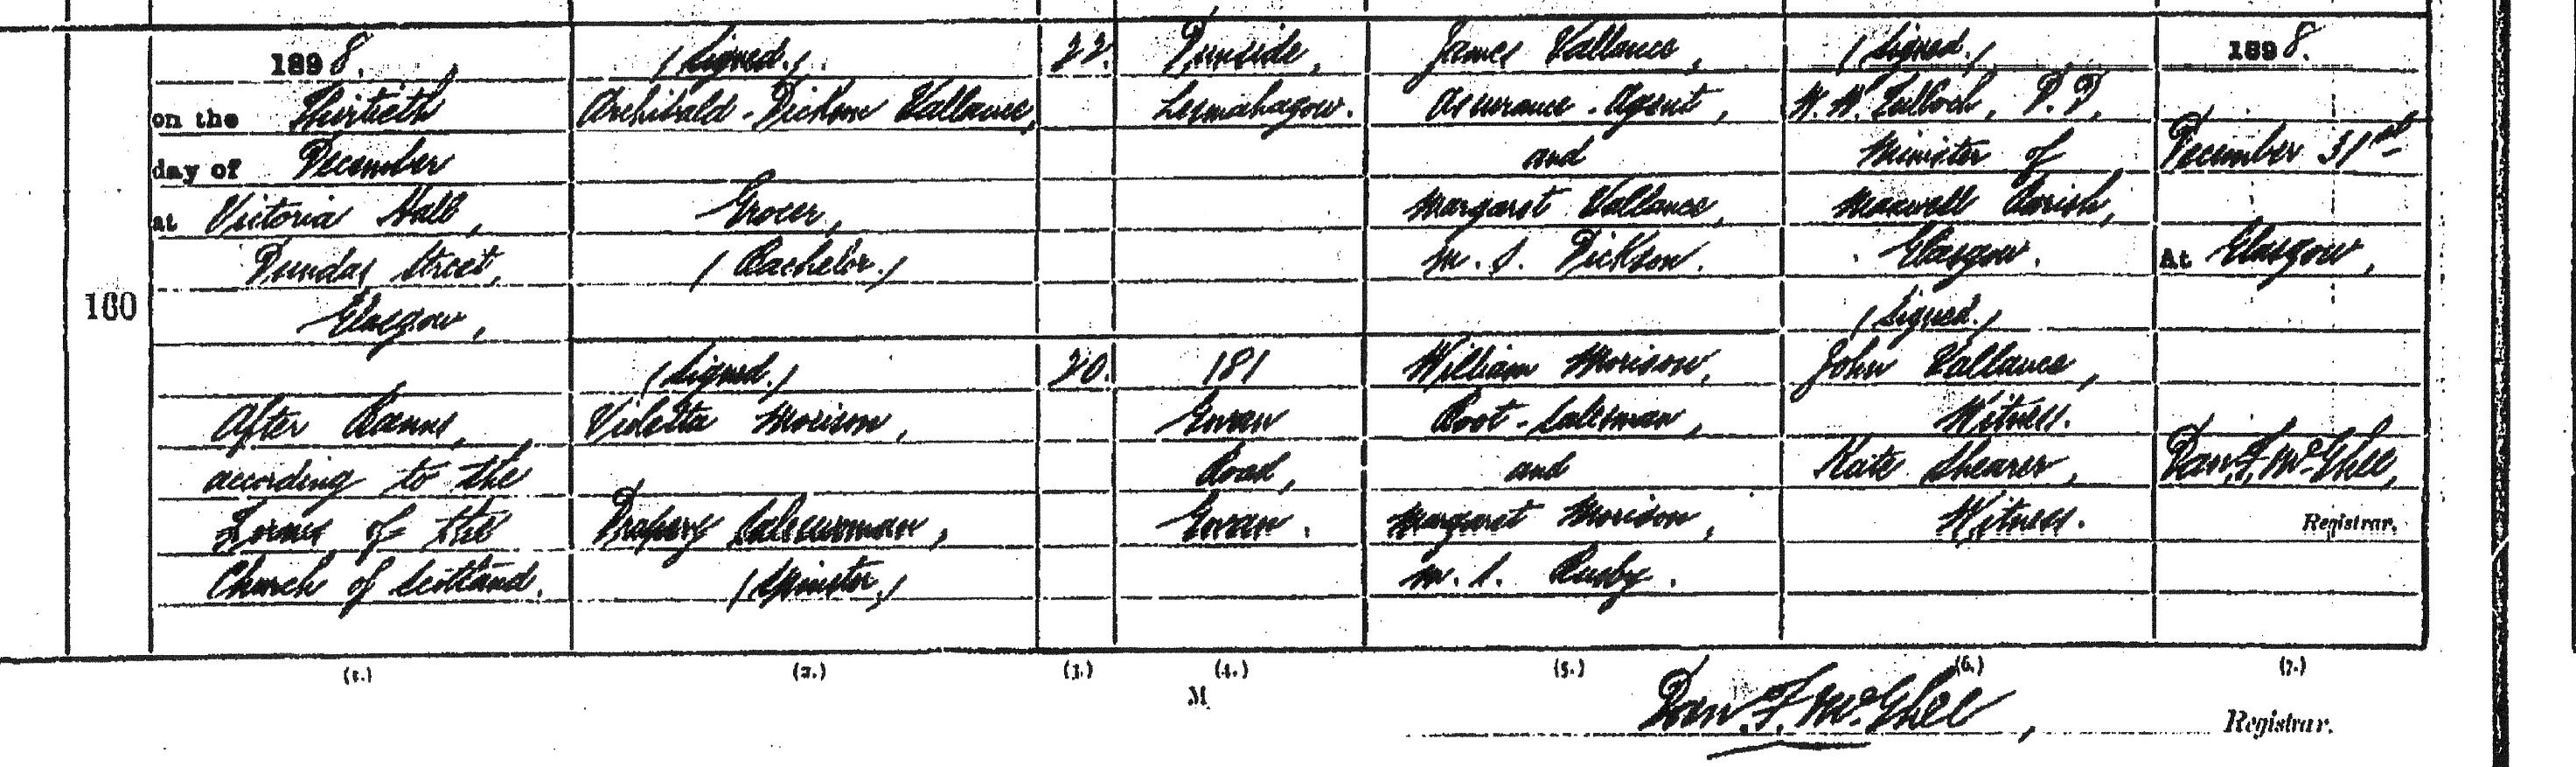 1898.
on the Thirtieth
day of December
at Victoria Hall,
Dundas Street,
Glasgow,
After Banns,
according to the
Forms of the
Church of Scotland.
100
(Signed.)
Archibald Dickson Vallance,
Grocer,
(Bachelor.)
(Signed.)
Violetta Morison,
Drapery Saleswoman,
(Spinster,)
22.
20.
Dunside,
Lesmahagow.
181
Govan
Road,
Govan.
James Vallance,
Assurance Agent,
and
Margaret Vallance,
m. s. Dickson.
William Morison,
Boot-Salesman,
and
Margaret Morison,
m. s. Busby.
(Signed.)
W. W. Tulloch, D.D,
Minister of
Maxwell Parish,
Glasgow.
(Signed.)
John Vallance,
Witness.
Kate Shearer,
Witness.
1898.
December 31st
At Glasgow,
Dan. F. McGhee,
Registrar.
(1.) (2.) (3.) (4.) (5.) (6.) (7.)
M
Dan. F. McGhee, Registrar.